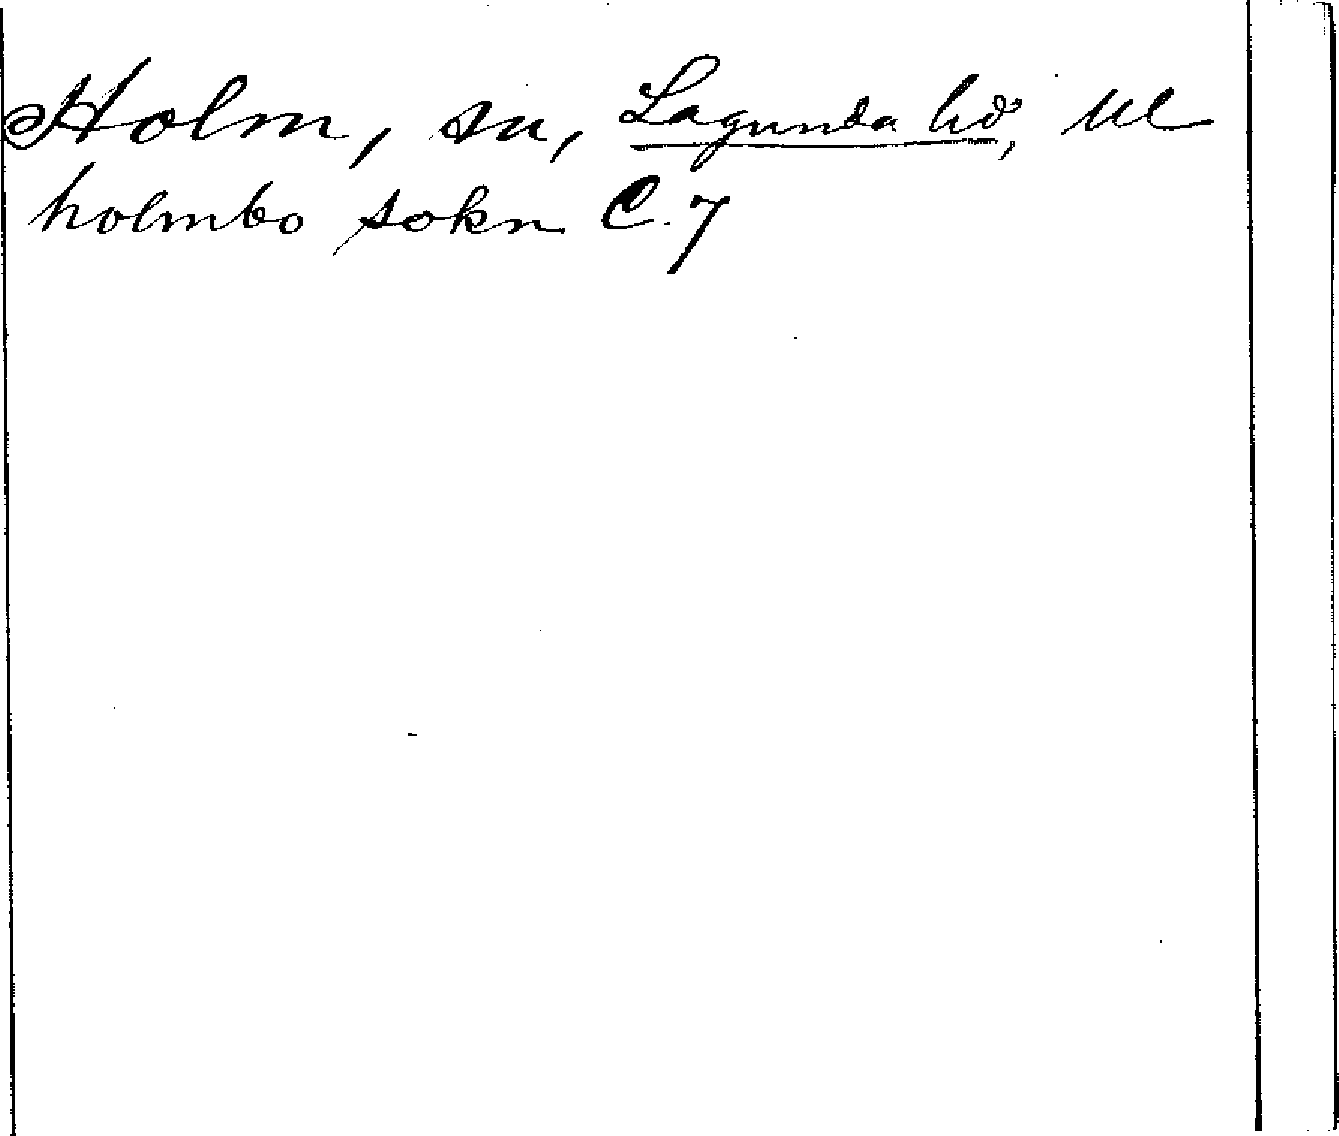 Holm, sn, Lagunda hd, Ul
holmbo sokn C. 7